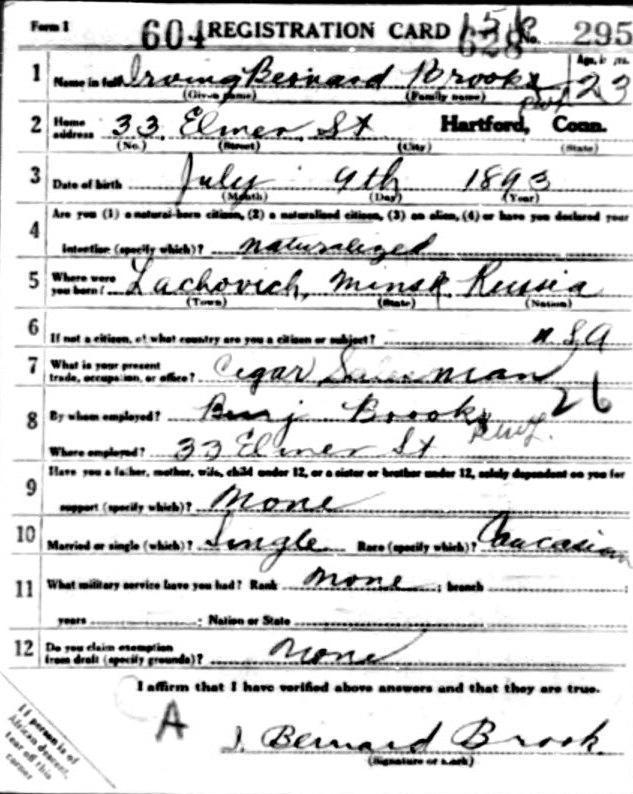 Form 1 604 REGISTRATION CARD 628 No. 295
1 Name in full Irving Bernard Brooks Age, in yrs. 23
(Given name) (Family name)
2 Home address 33 Elmer St Hartford, Conn.
(No.) (Street) (City) (State)
3 Date of birth July 9th 1893
(Month) (Day) (Year)
4 Are you (1) a natural-born citizen, (2) a naturalized citizen, (3) an alien, (4) or have you declared your
intention (specify which)? naturalized
5 Where were you born? Lachovich, Minsk, Russia
(Town) (State) (Nation)
6 If not a citizen, of what country are you a citizen or subject? U S A
7 What is your present trade, occupation, or office? Cigar Salesman 26
8 By whom employed? Benj Brooks
Where employed? 33 Elmer St
9 Have you a father, mother, wife, child under 12, or a sister or brother under 12, solely dependent on you for
support (specify which)? None
10 Married or single (which)? Single Race (specify which)? Caucasian
11 What military service have you had? Rank None ; branch ;
years ; Nation or State
12 Do you claim exemption from draft (specify grounds)? None
I affirm that I have verified above answers and that they are true.
A I. Bernard Brook
(Signature or mark)
If person is of
African descent,
tear off this
corner